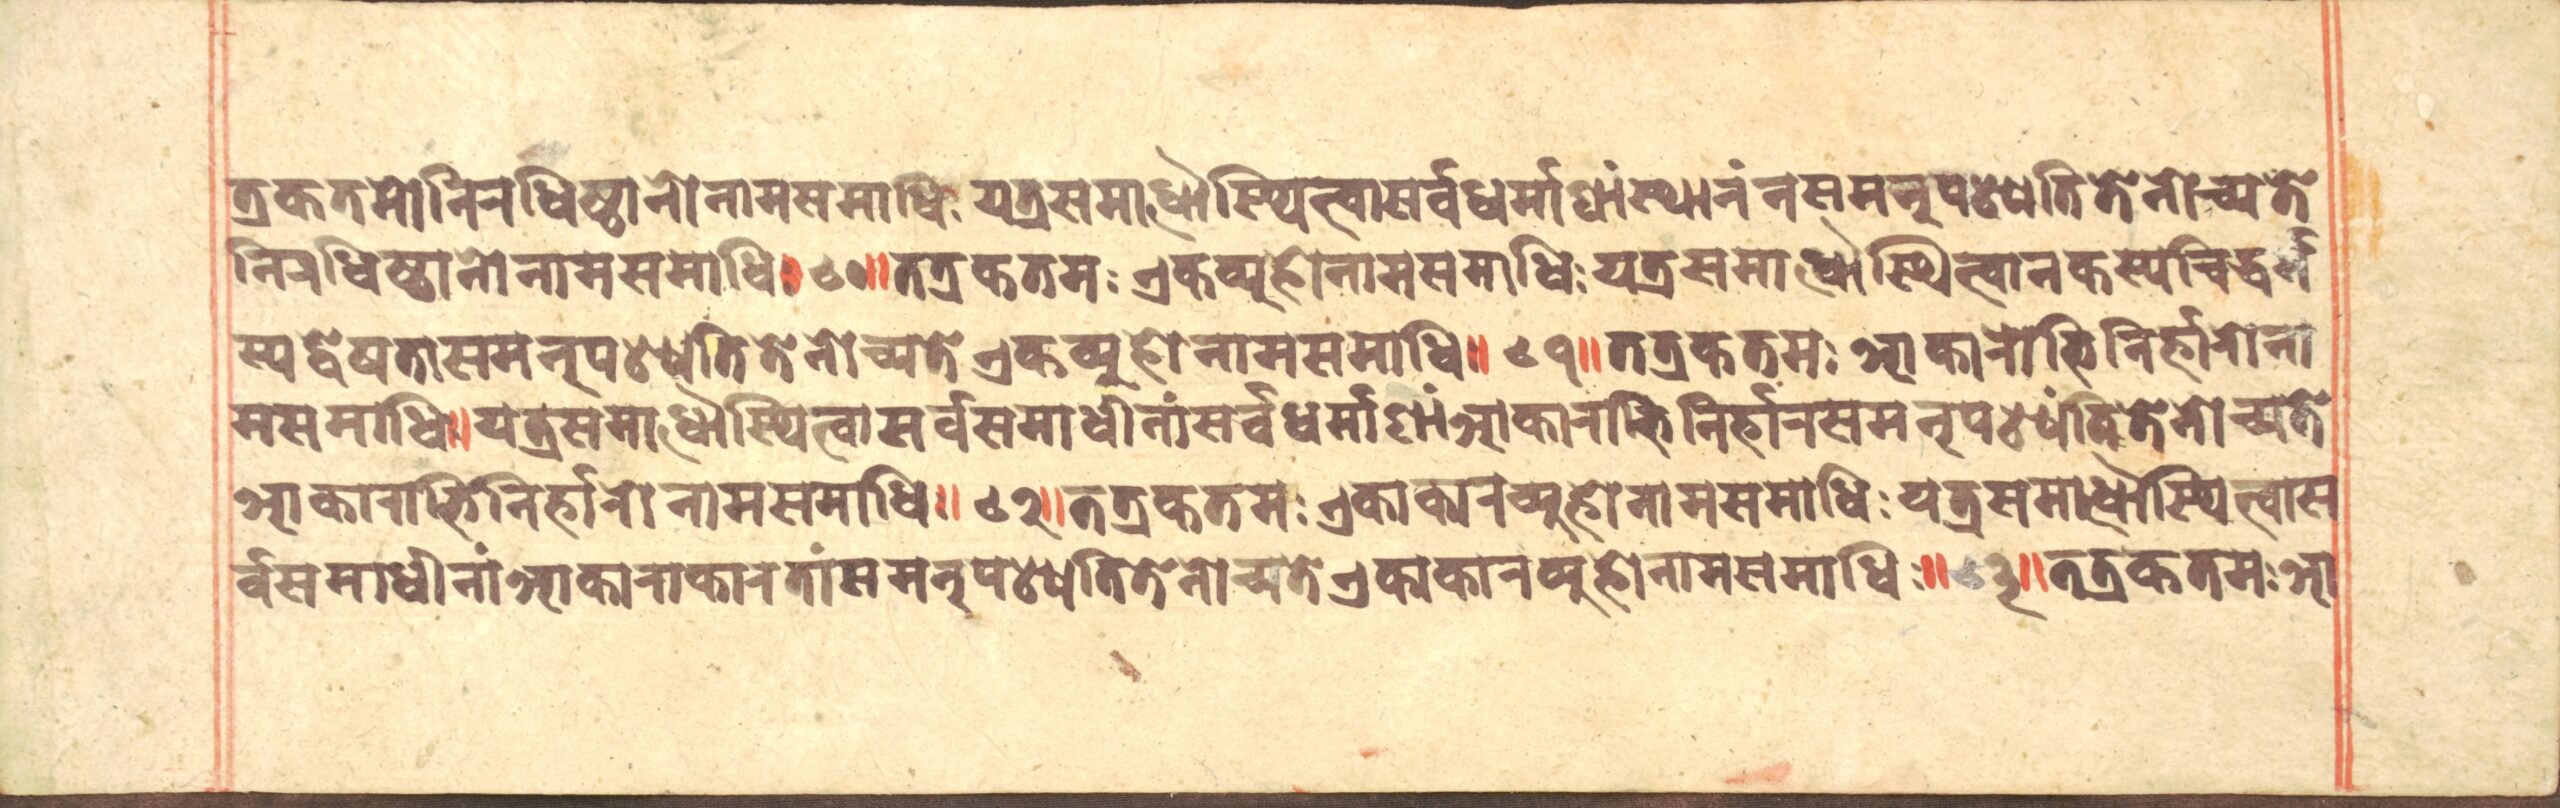 त्रकतमोनिरधिष्ठानोनामसमाधिः यत्रसमाधौस्थित्वासर्वधर्माणांस्थानंनसमनुपश्यतितेनोच्यते
निरधिष्ठानोनामसमाधिः ९०॥तत्रकतमः एकव्यूहोनामसमाधिः यत्रसमाधौस्थित्वानकस्यचिद्धर्म
स्यद्वेषतासमनुपश्यतितेनोच्यतेएकव्यूहोनामसमाधिः॥ ९१॥तत्रकतमः आकारोभिनिर्हारोना
मसमाधिः॥यत्रसमाधौस्थित्वासर्वसमाधीनांसर्वधर्माणांआकाराभिनिर्हारसमनुपश्यंतितेनोच्यते
आकाराभिनिर्हारोनामसमाधिः॥ ९२॥तत्रकतमः एकाकारव्यूहोनामसमाधिः यत्रसमाधौस्थित्वास
र्वसमाधीनांआकाराकारतांसमनुपश्यतितेनोच्यतेएकाकारव्यूहोनामसमाधिः॥९३॥तत्रकतमः आ